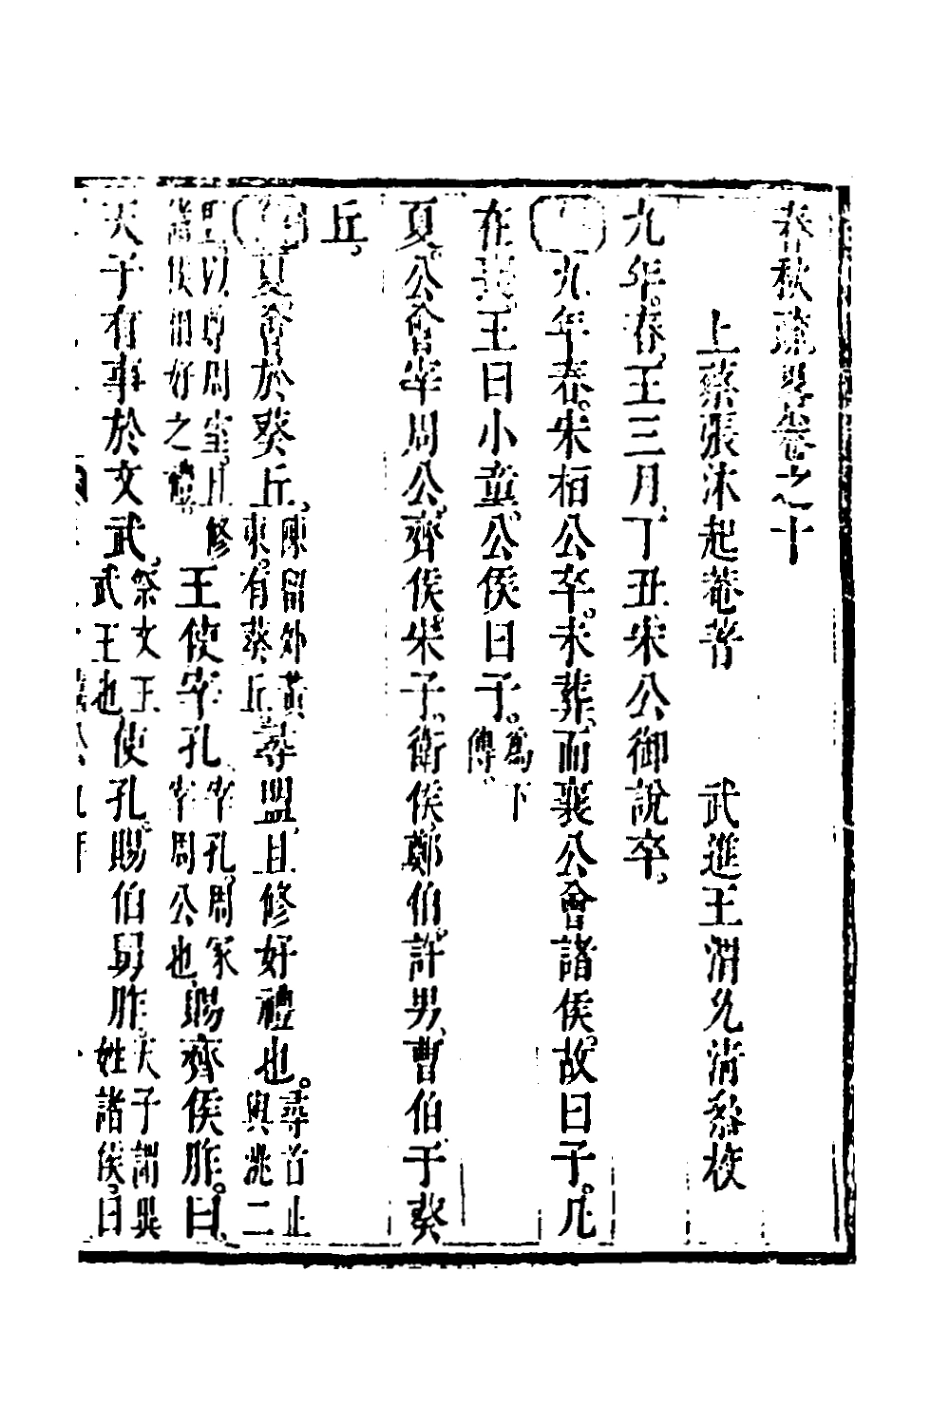 春秋疏畧卷之十
上蔡張沐起菴著　武進王渭允清
九年春王三月丁丑宋公御說卒
九年春宋桓公卒未葬而襄公會諸侯故曰子凡
在喪王曰小童公侯曰子為下傳
夏公會宰周公齊侯宋子衛侯鄭伯許男曹伯于葵
丘
夏會於葵丘陳留外黃東有葵丘尋盟且修好禮也尋首止與洮二
盟以尊周室且修諸侯相好之禮王使宰孔宰孔周家宰周公也賜齊侯胙曰
天子有事於文武祭文王武王也使孔賜伯舅胙天子謂異姓諸侯曰